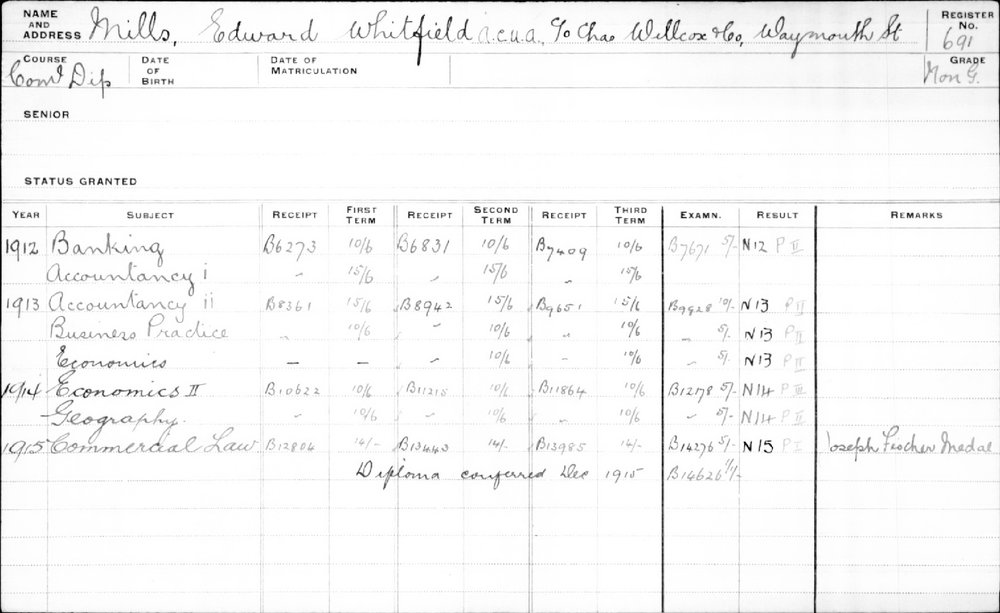 NAME AND ADDRESS Mills, Edward Whitfield a.c.u.a. c/o Chas Willcox & Co, Waymouth St REGISTER NO. 691
COURSE Coml Dip DATE OF BIRTH DATE OF MATRICULATION GRADE Non G.
SENIOR
STATUS GRANTED
YEAR SUBJECT RECEIPT FIRST TERM RECEIPT SECOND TERM RECEIPT THIRD TERM EXAMN. RESULT REMARKS
1912 Banking B6273 10/6 B6831 10/6 B7409 10/6 B7671 5/- N12 P II
Accountancy i " 15/6 " 15/6 " 15/6
1913 Accountancy ii B8361 15/6 B8942 15/6 B9651 15/6 B9928 10/- N13 P II
Business Practice " 10/6 " 10/6 " 10/6 " 5/- N13 P II
Economics — — — 10/6 " 10/6 " 5/- N13 P II
1914 Economics II B10622 10/6 B11215 10/6 B11864 10/6 B12178 5/- N14 P II
Geography. " 10/6 " 10/6 " 10/6 " 5/- N14 P II
1915 Commercial Law B12804 14/- B13443 14/- B13985 14/- B14276 5/- N15 P I Joseph Fischer Medal
Diploma conferred Dec 1915 B14626